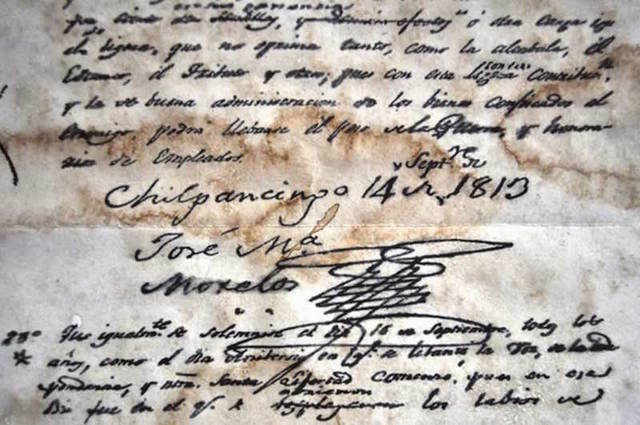 ó otra carga igu
al ligera, que no oprima tanto, como la alcabala, el
Estanco, el Tributo y otros; pues con esta ligera contribucn.
y la buena administracion de los bienes confiscados al
Enemigo podrá llebarse el peso de la Guerra, y honora-
rios de Empleados.
Chilpancingo 14 de Septre. de 1813
José Ma.
Morelos
23º Que igualmte. se solemnise el dia 16 de Septiembre, todos los
años, como el dia Anibersario en q. se lebantó la Voz de la Inde
pendencia, y ntra. Santa Libertad comensó, pues en ese
Dia fue en el q. se los labios de